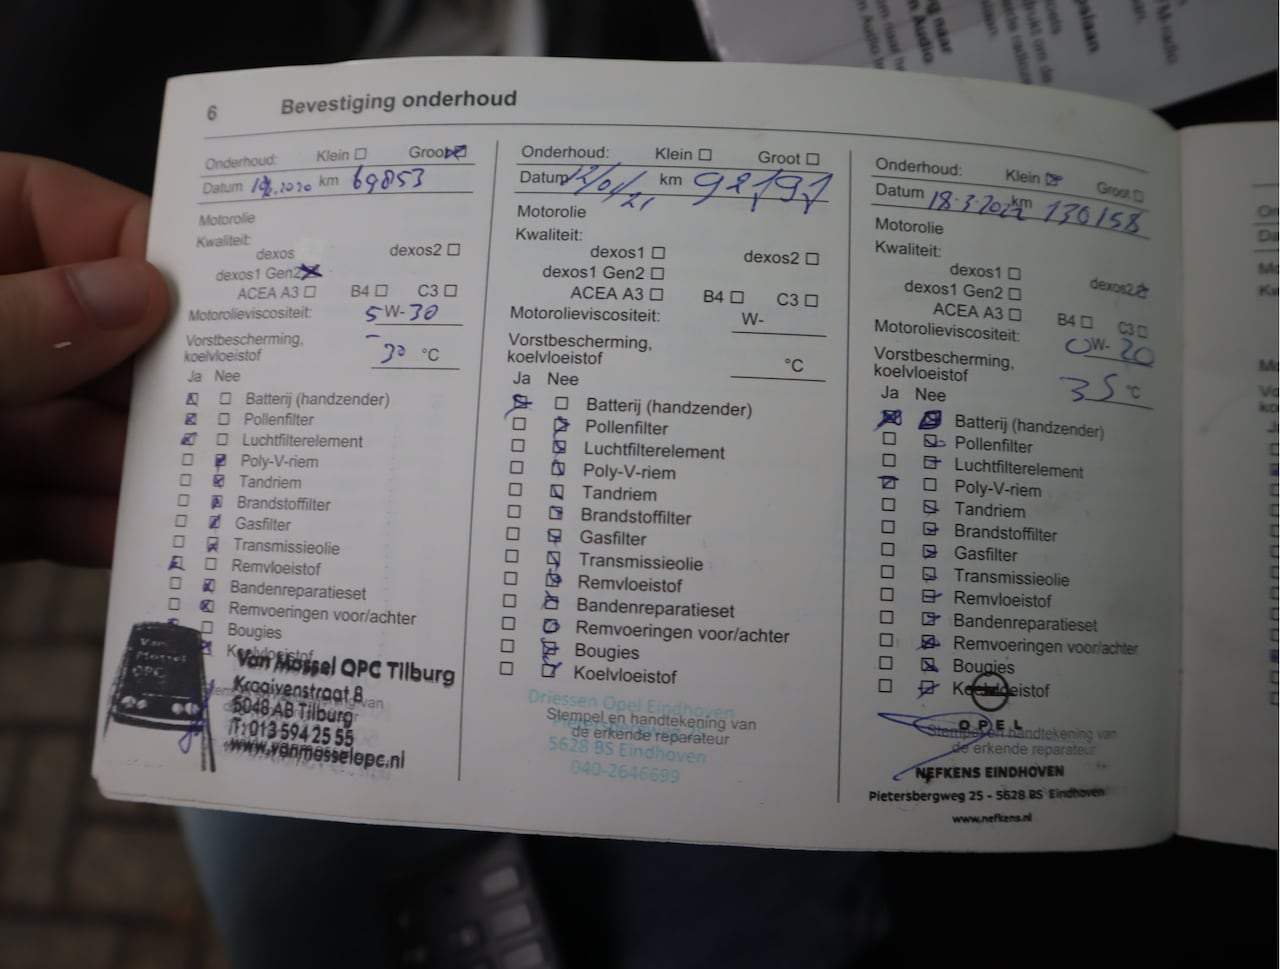 6 Bevestiging onderhoud
Onderhoud: Klein Groot
Datum 2020 km 69853
Motorolie
Kwaliteit:
dexos dexos2
dexos1 Gen2
ACEA A3 B4 C3
Motorolieviscositeit: 5 W-30
Vorstbescherming,
koelvloeistof -30 °C
Ja Nee
Batterij (handzender)
Pollenfilter
Luchtfilterelement
Poly-V-riem
Tandriem
Brandstoffilter
Gasfilter
Transmissieolie
Remvloeistof
Bandenreparatieset
Remvoeringen voor/achter
Bougies
Koelvloeistof
Van Mossel OPC
Van Mossel OPC Tilburg
Kraaivenstraat 8
5048 AB Tilburg
T: 013 594 25 55
www.vanmosselopc.nl
Onderhoud: Klein Groot
Datum 12/01/21 km
Motorolie
Kwaliteit:
dexos1 dexos2
dexos1 Gen2
ACEA A3 B4 C3
Motorolieviscositeit: W-
Vorstbescherming,
koelvloeistof °C
Ja Nee
Batterij (handzender)
Pollenfilter
Luchtfilterelement
Poly-V-riem
Tandriem
Brandstoffilter
Gasfilter
Transmissieolie
Remvloeistof
Bandenreparatieset
Remvoeringen voor/achter
Bougies
Koelvloeistof
Driessen Opel Eindhoven
Stempel en handtekening van
de erkende reparateur
5628 BS Eindhoven
040-2646699
Onderhoud: Klein Groot
Datum 18-3-2022 km 130158
Motorolie
Kwaliteit:
dexos1 dexos2
dexos1 Gen2
ACEA A3 B4 C3
Motorolieviscositeit: 0W-20
Vorstbescherming,
koelvloeistof 35 °C
Ja Nee
Batterij (handzender)
Pollenfilter
Luchtfilterelement
Poly-V-riem
Tandriem
Brandstoffilter
Gasfilter
Transmissieolie
Remvloeistof
Bandenreparatieset
Remvoeringen voor/achter
Bougies
Koelvloeistof
OPEL
Stempel en handtekening van
de erkende reparateur
NEFKENS EINDHOVEN
Pietersbergweg 25 - 5628 BS Eindhoven
www.nefkens.nl